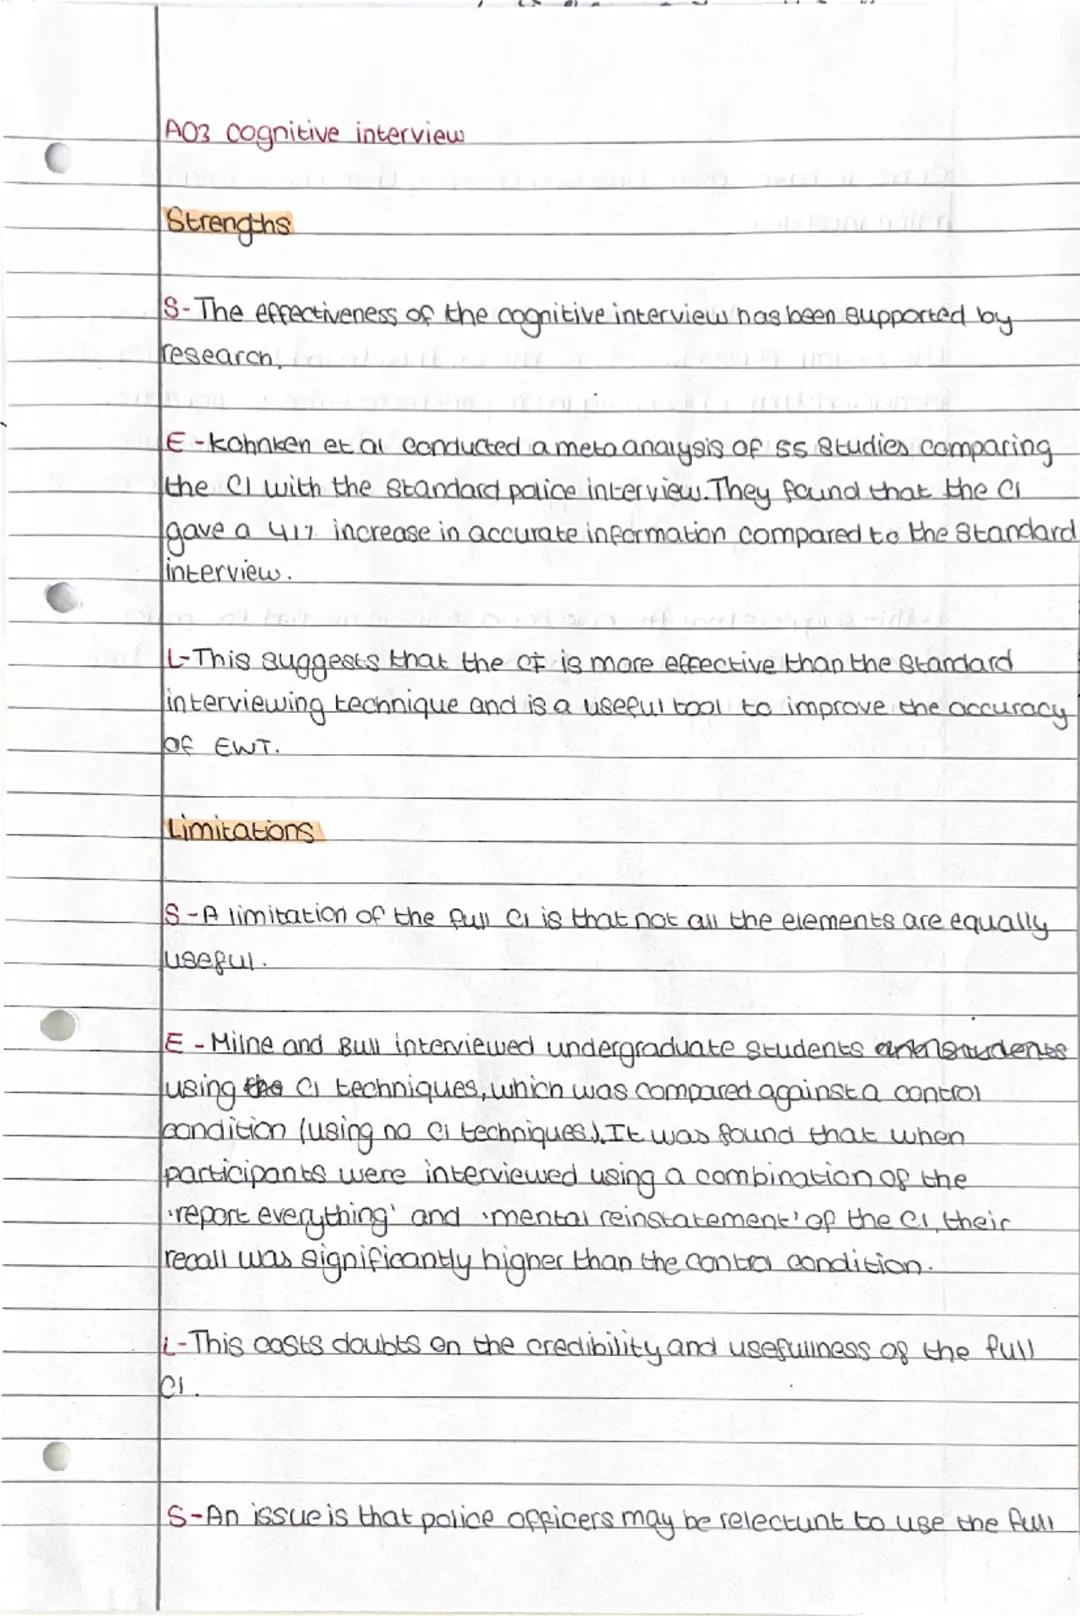 AO3 cognitive interview
Strengths
S-The effectiveness of the cognitive interview has been supported by
research.
E-Kohnken et al conducted a meta analysis of 55 studies comparing
the CI with the standard police interview. They found that the CI
gave a 41% increase in accurate information compared to the standard
interview.
L-This suggests that the CI is more effective than the standard
interviewing technique and is a useful tool to improve the accuracy
of EWT.
Limitations
S-A limitation of the full CI is that not all the elements are equally
useful.
E-Milne and Bull interviewed undergraduate students
using the CI techniques, which was compared against a control
condition (using no CI techniques). It was found that when
participants were interviewed using a combination of the
'report everything' and 'mental reinstatement' of the CI, their
recall was significantly higher than the control condition.
L-This casts doubts on the credibility and usefullness of the full
CI.
S-An issue is that police officers may be relectunt to use the full